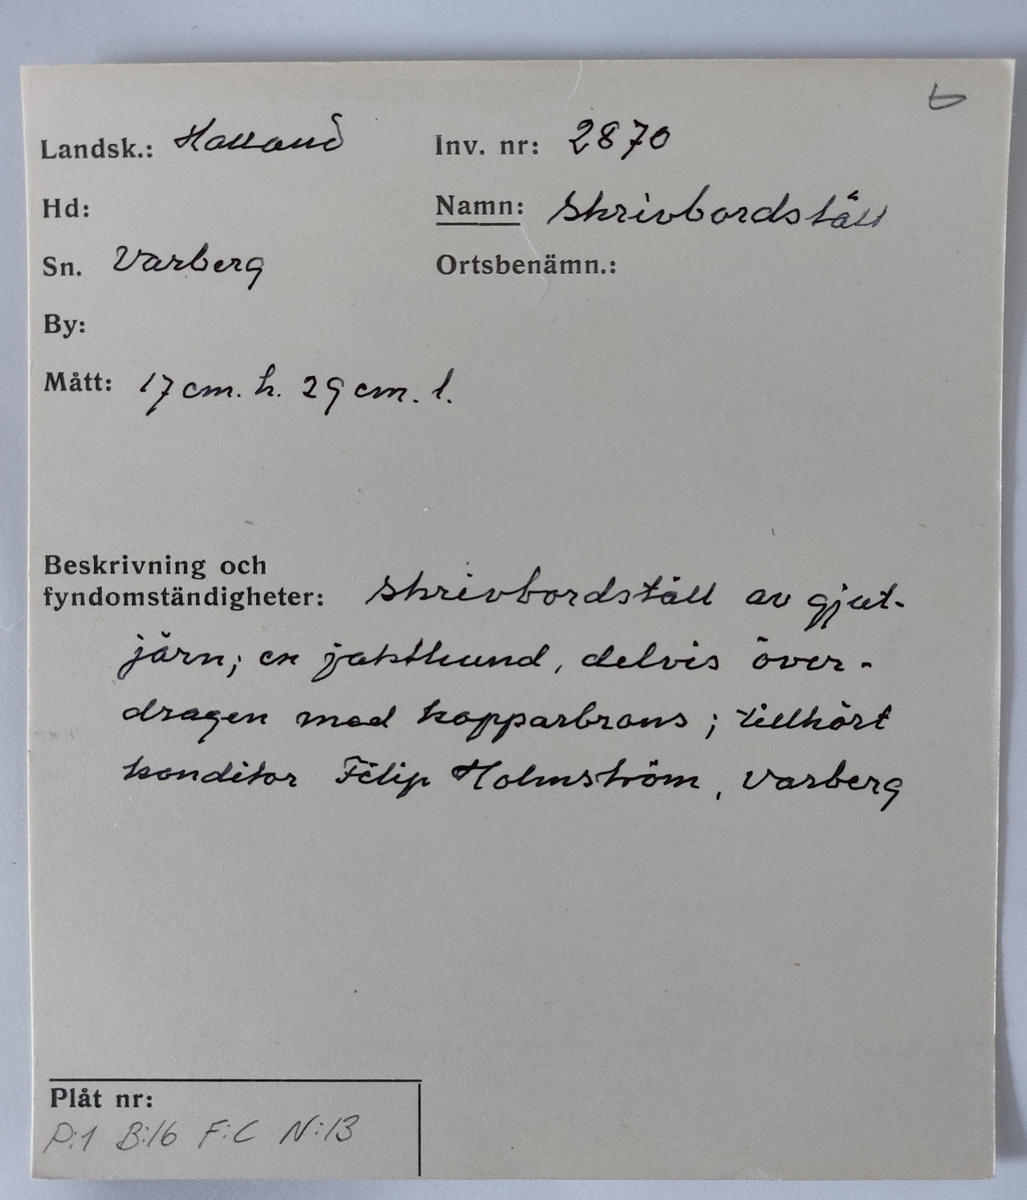 Landsk.: Halland Inv. nr: 2870
Hd: Namn: Skrivbordställ
Sn. Varberg Ortsbenämn.:
By:
Mått: 17 cm. h. 29 cm. l.
Beskrivning och
fyndomständigheter: Skrivbordställ av gjut-
järn; en jakthund, delvis över-
dragen med kopparbrons; tillhört
konditor Filip Holmström, Varberg
Plåt nr:
P:1 B:16 F:C N:13